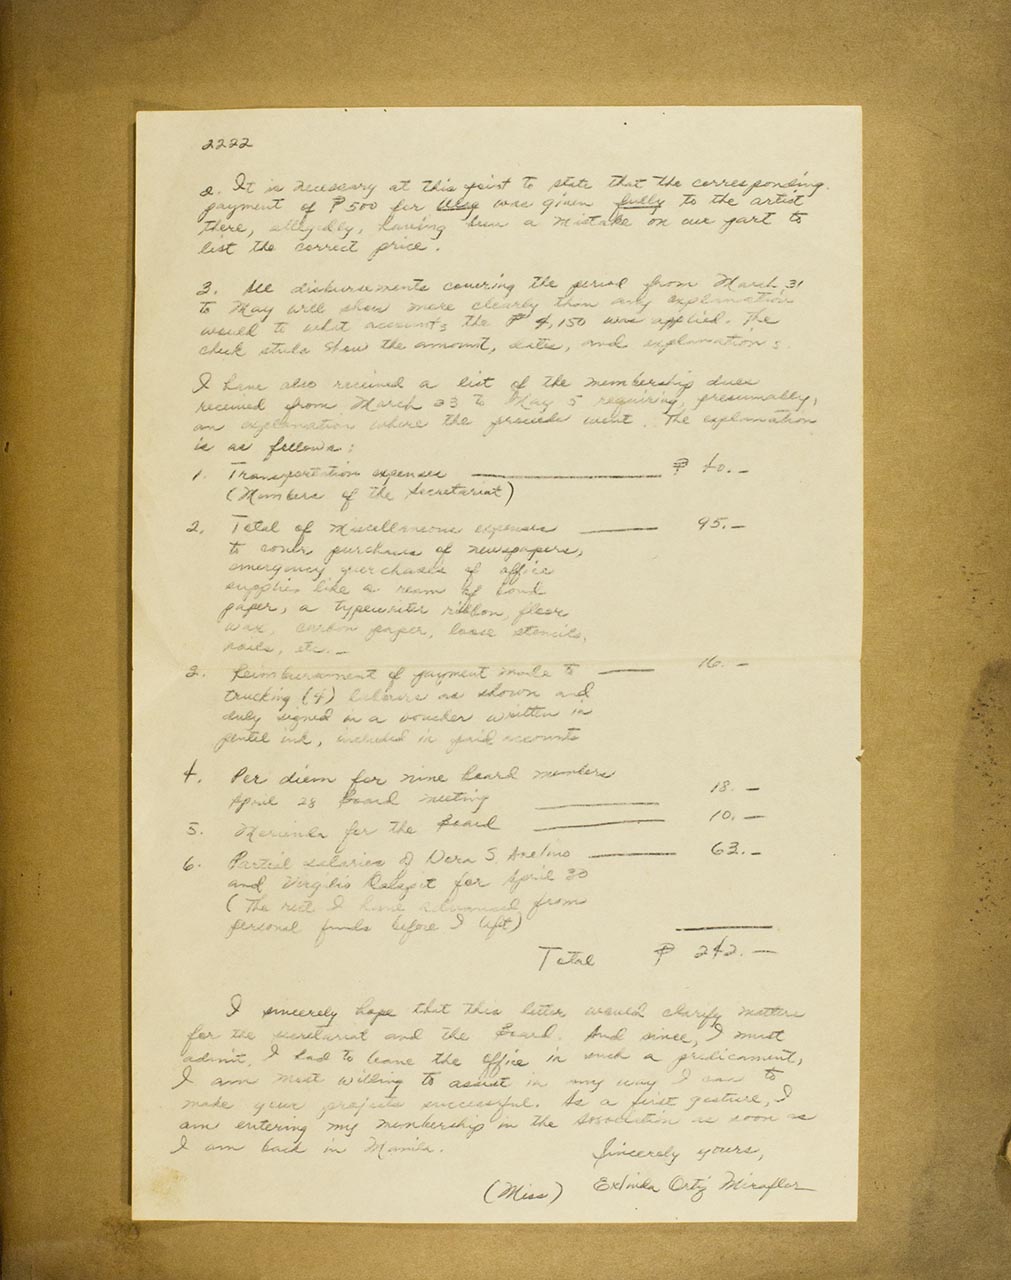 2222
2. It is necessary at this point to state that the corresponding
payment of ₱500 for was given fully to the artist
there, allegedly, having been a mistake on our part to
list the correct price.
3. All disbursements covering the period from March 31
to May will show more clearly than any explanation
would to what accounts the ₱ 4,150 was applied. The
check stubs show the amount, dates, and explanations.
I have also received a list of the membership dues
received from March 23 to May 5 requiring, presumably,
an explanation where the proceeds went. The explanation
is as follows:
1. Transportation expenses ——— ₱ 40.—
(Members of the Secretariat)
2. Total of miscellaneous expenses ——— 95.—
to cover purchases of newspapers,
emergency purchases of office
supplies like a ream of bond
paper, a typewriter ribbon, floor
wax, carbon paper, loose stencils,
nails, etc. —
3. Reimbursement of payment made to ——— 16.—
trucking (4) laborers as shown and
duly signed in a voucher written in
pentel ink, included in paid accounts
4. Per diem for nine board members
April 28 Board meeting ——— 18.—
5. Merienda for the Board ——— 10.—
6. Partial salaries of Dora S. Avelino ——— 63.—
and Virgilio for April 30
(The rest I have advanced from
personal funds before I left)
Total ₱ 242.—
I sincerely hope that this letter would clarify matters
for the secretariat and the Board. And since, I must
admit, I had to leave the office in such a predicament,
I am most willing to assist in any way I can to
make your projects successful. As a first gesture, I
am entering my membership in the Association as soon as
I am back in Manila.
Sincerely yours,
(Miss) Ortiz Miraflor